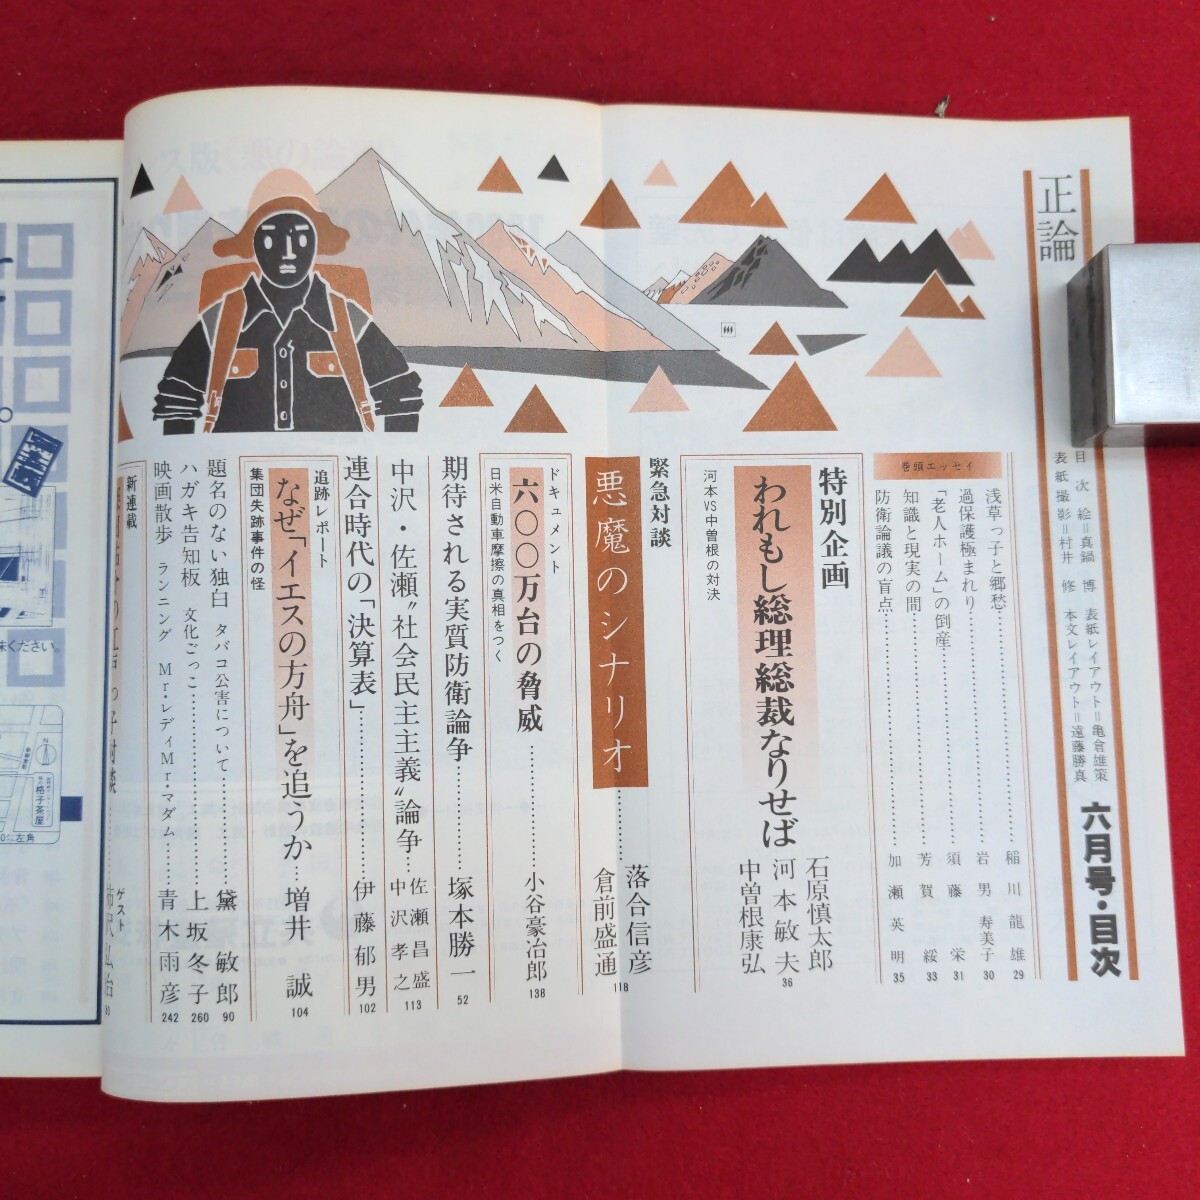 正論
六月号・目次
目次 絵＝真鍋 博 表紙レイアウト＝亀倉雄策
表紙撮影＝村井 修 本文レイアウト＝遠藤勝真
巻頭エッセイ
浅草っ子と郷愁 稲川龍雄 29
過保護極まれり 岩男寿美子 30
「老人ホーム」の倒産 須藤栄 31
知識と現実の間 芳賀綏 33
防衛論議の盲点 加瀬英明 35
特別企画
われもし総理総裁なりせば
河本VS中曽根の対決
石原慎太郎
河本敏夫
中曽根康弘
36
緊急対談
悪魔のシナリオ
落合信彦
倉前盛通
118
ドキュメント
六〇〇万台の脅威 小谷豪冶郎 138
日米自動車摩擦の真相をつく
期待される実質防衛論争 塚本勝一 52
中沢・佐瀬〝社会民主主義〟論争 佐瀬昌盛 中沢孝之 113
連合時代の「決算表」 伊藤郁男 102
追跡レポート
なぜ「イエスの方舟」を追うか 増井 誠 104
集団失跡事件の怪
題名のない独白 タバコ公害について 黛敏郎 90
ハガキ告知板 文化ごっこ 上坂冬子 260
映画散歩 ランニング Mr・レディMr・マダム 青木雨彦 242
新連載
ゲスト
格子茶屋